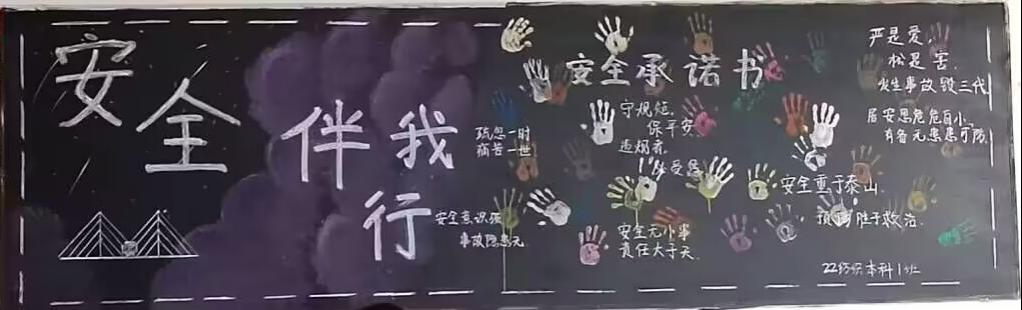 安全伴我行
疏忽一时
痛苦一世
安全意识强
事故隐患无
安全承诺书
守规范,
保平安
违规者,
必受
安全无小事
责任大于天
严是爱,
松是害
发生事故毁三代
居安思危危自小,
有备无患患可防
安全重于泰山
预防胜于救治
22纺织本科1班